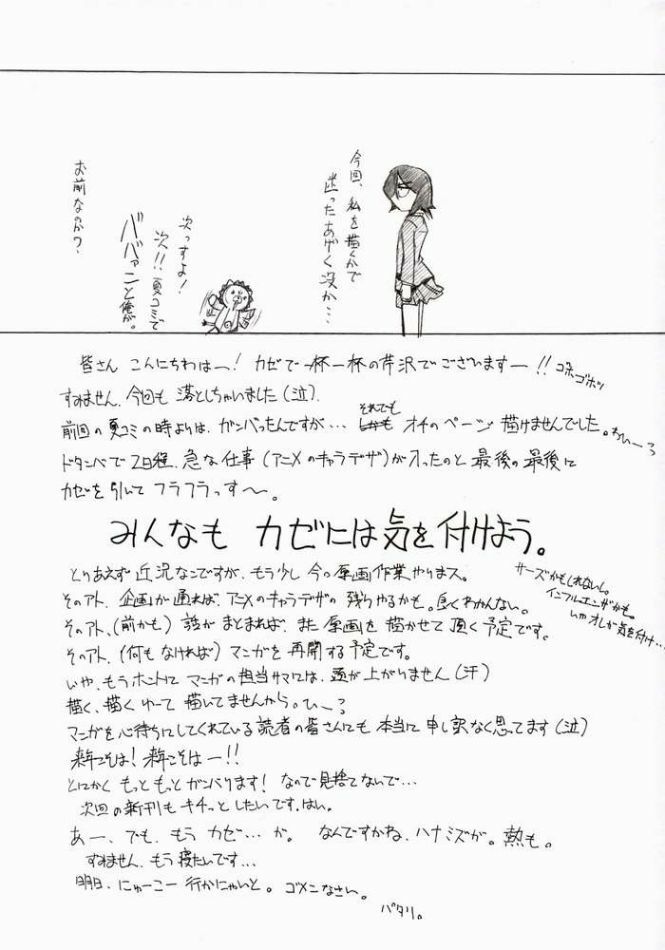 今回、私を描くかで
迷ったあげく没か…
次っすよ！
次!!夏コミで
ババァニと俺が。
お前なのか？
皆さん こんにちわはー！カゼで一杯一杯の芹沢でございますー!!
コホゴホッ
すみません、今回も落としちゃいました(泣)
前回の夏コミの時よりは、ガンバったんですが… それでも オチのページ描けませんでした。
ドタンバで2日程、急な仕事(アニメのキャラデザ)が入ったのと最後の最後に
カゼを引いてフラフラっす〜。
みんなも カゼには気を付けよう。
とりあえず近況なこですが、もう少し今の原画作業やりまス。
サーズかもしれないし。
インフルエンザかも。
いやオレが気を付け…
そのアト、企画が通れば、アニメのキャラデザの残りやるかも。良くわかんない。
そのアト、(前かも)話がまとまれば、また原画を描かせて頂く予定です。
そのアト、(何もなければ)マンガを再開する予定です。
いや、もうホントにマンガの担当サマには、頭が上がりません(汗)
描く、描くゆーて描いてませんから。ひー？
マンガを心待ちにしてくれている読者の皆さんにも本当に申し訳なく思ってます(泣)
来年こそは！来年こそはー!!
とにかくもっともっとガンバります！なので見捨てないで…
次回の新刊もキチッとしたいです、はい。
あー、でも、もうカゼ…が。なんですかね、ハナミズが。熱も。
すみません、もう寝たいです…
明日、にゅーこー行かにゃいと。ゴメンなさい。
パタリ。